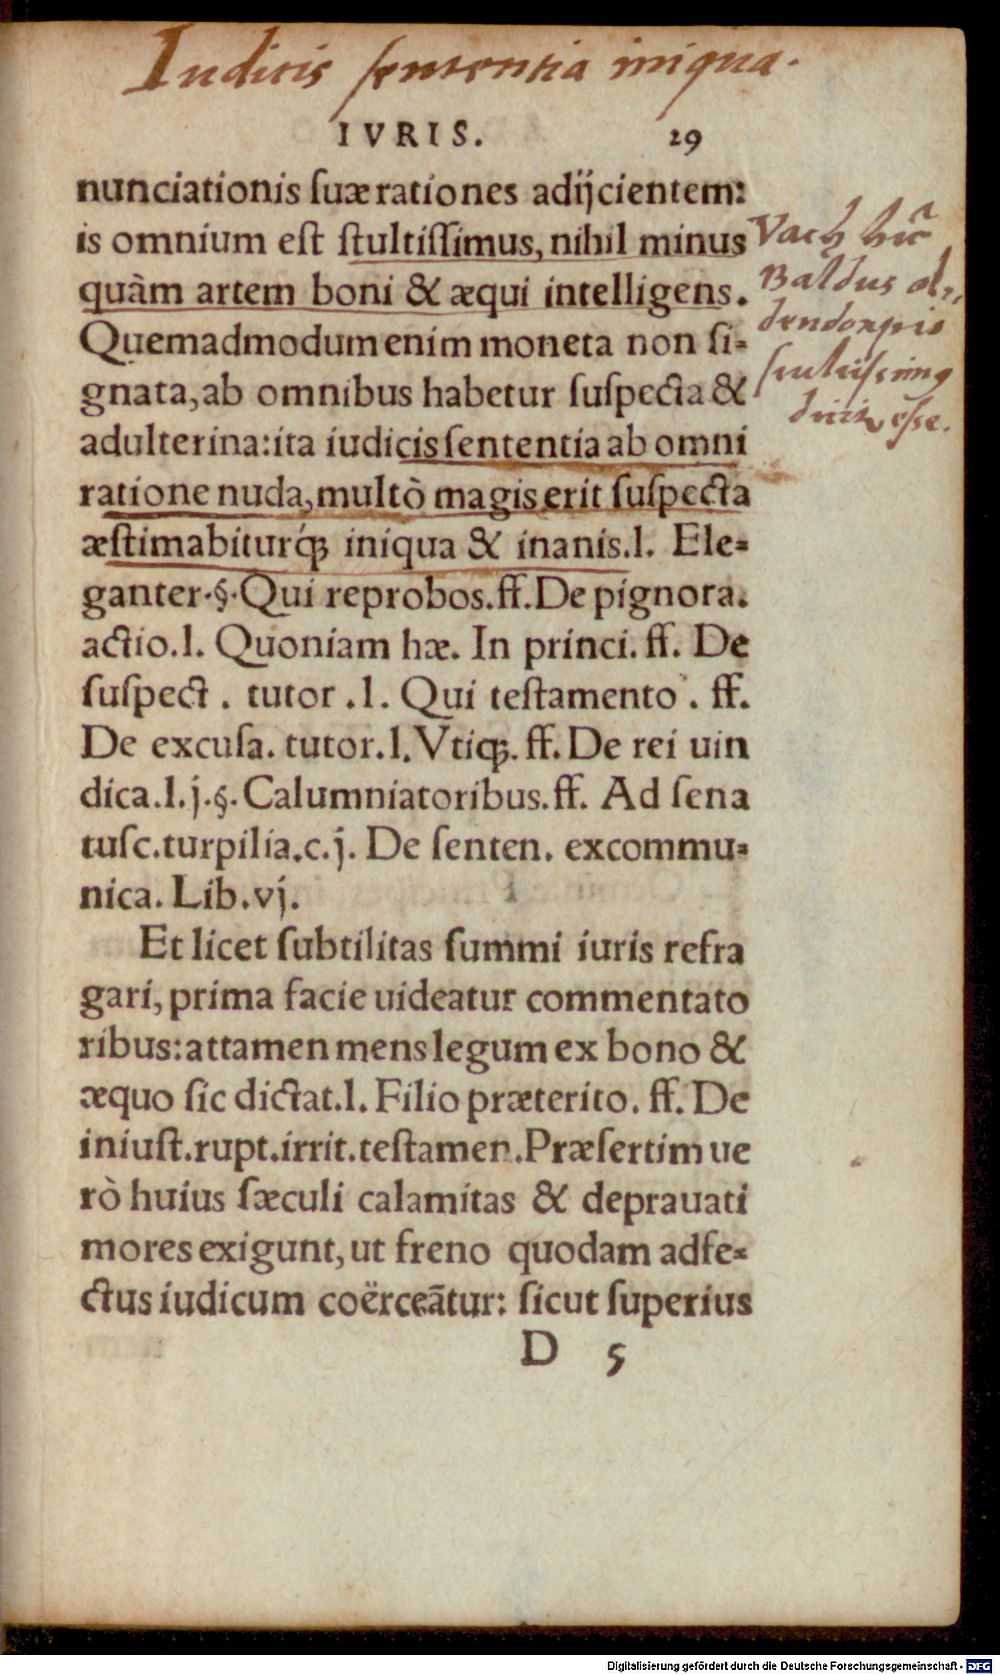 Iudicis sententia iniqua.
IVRIS. 29
nunciationis ſuæ rationes adijcientem:
is omnium eſt ſtultiſſimus, nihil minus
quàm artem boni & æqui intelligens.
Quemadmodum enim moneta non ſi-
gnata, ab omnibus habetur ſuſpecta &
adulterina: ita iudicis ſententia ab omni
ratione nuda, multò magis erit ſuſpecta
æſtimabiturq́ꝫ iniqua & inanis. l. Ele-
ganter. §. Qui reprobos. ff. De pignora.
actio. l. Quoniam hæ. In princi. ff. De
ſuſpect. tutor. l. Qui teſtamento. ff.
De excuſa. tutor. l. Vtiqꝫ. ff. De rei uin
dica. l. j. §. Calumniatoribus. ff. Ad ſena
tuſc. turpilia. c. j. De ſenten. excommu-
nica. Lib. vj.
Et licet ſubtilitas ſummi iuris refra
gari, prima facie uideatur commentato
ribus: attamen mens legum ex bono &
æquo ſic dictat. l. Filio præterito. ff. De
iniuſt. rupt. irrit. teſtamen. Præſertim ue
rò huius ſæculi calamitas & deprauati
mores exigunt, ut freno quodam adfe-
ctus iudicum coërceãtur: ſicut ſuperius
D 5
Baldus
esse.
Digitalisierung gefördert durch die Deutsche Forschungsgemeinschaft - DFG